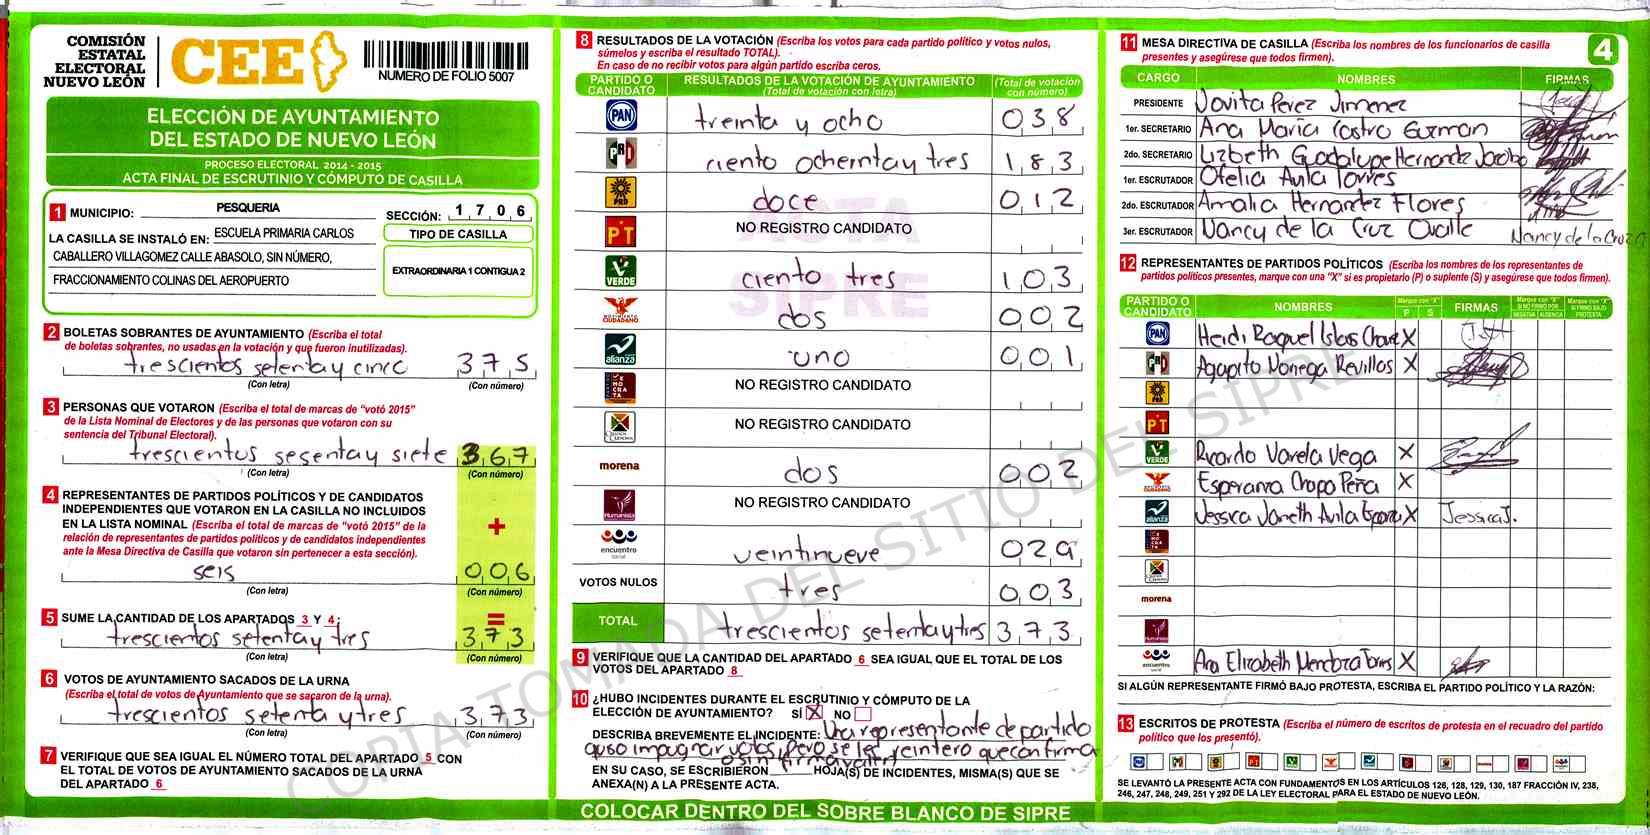 COMISIÓN
ESTATAL
ELECTORAL
NUEVO LEÓN
CEE
NUMERO DE FOLIO 5007
ELECCIÓN DE AYUNTAMIENTO
DEL ESTADO DE NUEVO LEÓN
PROCESO ELECTORAL 2014 - 2015
ACTA FINAL DE ESCRUTINIO Y CÓMPUTO DE CASILLA
1 MUNICIPIO: PESQUERIA
SECCIÓN: 1 7 0 6
LA CASILLA SE INSTALÓ EN: ESCUELA PRIMARIA CARLOS
CABALLERO VILLAGOMEZ CALLE ABASOLO, SIN NÚMERO,
FRACCIONAMIENTO COLINAS DEL AEROPUERTO
TIPO DE CASILLA
EXTRAORDINARIA 1 CONTIGUA 2
2 BOLETAS SOBRANTES DE AYUNTAMIENTO (Escriba el total
de boletas sobrantes, no usadas en la votación y que fueron inutilizadas).
trescientos setenta y cinco 3 7 5
(Con letra) (Con número)
3 PERSONAS QUE VOTARON (Escriba el total de marcas de "votó 2015"
de la Lista Nominal de Electores y de las personas que votaron con su
sentencia del Tribunal Electoral).
trescientos sesenta y siete 3 6 7
(Con letra) (Con número)
4 REPRESENTANTES DE PARTIDOS POLÍTICOS Y DE CANDIDATOS
INDEPENDIENTES QUE VOTARON EN LA CASILLA NO INCLUIDOS
EN LA LISTA NOMINAL (Escriba el total de marcas de "votó 2015" de la
relación de representantes de partidos políticos y de candidatos independientes
ante la Mesa Directiva de Casilla que votaron sin pertenecer a esta sección).
+
seis 0 0 6
(Con letra) (Con número)
5 SUME LA CANTIDAD DE LOS APARTADOS 3 Y 4:
=
trescientos setenta y tres 3 7 3
(Con letra) (Con número)
6 VOTOS DE AYUNTAMIENTO SACADOS DE LA URNA
(Escriba el total de votos de Ayuntamiento que se sacaron de la urna).
trescientos setenta y tres 3 7 3
(Con letra) (Con número)
7 VERIFIQUE QUE SEA IGUAL EL NÚMERO TOTAL DEL APARTADO 5 CON
EL TOTAL DE VOTOS DE AYUNTAMIENTO SACADOS DE LA URNA
DEL APARTADO 6
8 RESULTADOS DE LA VOTACIÓN (Escriba los votos para cada partido político y votos nulos,
súmelos y escriba el resultado TOTAL).
En caso de no recibir votos para algún partido escriba ceros.
PARTIDO O CANDIDATO RESULTADOS DE LA VOTACIÓN DE AYUNTAMIENTO (Total de votación con letra) (Total de votación con número)
PAN treinta y ocho 0 3 8
PRD ciento ochenta y tres 1 8 3
PRD doce 0 1 2
PT NO REGISTRO CANDIDATO
VERDE ciento tres 1 0 3
MOVIMIENTO CIUDADANO dos 0 0 2
alianza uno 0 0 1
NO REGISTRO CANDIDATO
NO REGISTRO CANDIDATO
morena dos 0 0 2
Humanista NO REGISTRO CANDIDATO
encuentro social veintinueve 0 2 9
VOTOS NULOS tres 0 0 3
TOTAL trescientos setenta y tres 3 7 3
ACTA
SIPRE
9 VERIFIQUE QUE LA CANTIDAD DEL APARTADO 6 SEA IGUAL QUE EL TOTAL DE LOS
VOTOS DEL APARTADO 8
10 ¿HUBO INCIDENTES DURANTE EL ESCRUTINIO Y CÓMPUTO DE LA
ELECCIÓN DE AYUNTAMIENTO? SÍ X NO
DESCRIBA BREVEMENTE EL INCIDENTE: Una representante de partido
quiso impugnar votos, pero se les reintero que con firma
o sin firma
EN SU CASO, SE ESCRIBIERON ____ HOJA(S) DE INCIDENTES, MISMA(S) QUE SE
ANEXA(N) A LA PRESENTE ACTA.
COLOCAR DENTRO DEL SOBRE BLANCO DE SIPRE
4
11 MESA DIRECTIVA DE CASILLA (Escriba los nombres de los funcionarios de casilla
presentes y asegúrese que todos firmen).
CARGO NOMBRES FIRMAS
PRESIDENTE Jovita Perez Jimenez
1er. SECRETARIO Ana María Castro Guzman
2do. SECRETARIO Lizbeth Guadalupe Hernandez Jacobo
1er. ESCRUTADOR Ofelia Avila Torres
2do. ESCRUTADOR Amalia Hernandez Flores
3er. ESCRUTADOR Nancy de la Cruz Ovalle Nancy de la Cruz O
12 REPRESENTANTES DE PARTIDOS POLÍTICOS (Escriba los nombres de los representantes de
partidos políticos presentes, marque con una "X" si es propietario (P) o suplente (S) y asegúrese que todos firmen).
PARTIDO O CANDIDATO NOMBRES Marque con "X" P S FIRMAS Marque con "X" SI NO FIRMÓ POR NEGATIVA AUSENCIA Marque con "X" SI FIRMÓ BAJO PROTESTA
PAN Heidi Raquel Islas Chavez X
Agapito Noriega Revillos X
PRD
PT
VERDE Ricardo Varela Vega X
Esperanza Chapo Peña X
alianza Jessica Janeth Avila X Jessica J.
morena
Humanista
encuentro social Ana Elizabeth Mendoza Torres X
SI ALGÚN REPRESENTANTE FIRMÓ BAJO PROTESTA, ESCRIBA EL PARTIDO POLÍTICO Y LA RAZÓN:
13 ESCRITOS DE PROTESTA (Escriba el número de escritos de protesta en el recuadro del partido
político que los presentó).
SE LEVANTÓ LA PRESENTE ACTA CON FUNDAMENTOS EN LOS ARTÍCULOS 126, 128, 129, 130, 187 FRACCIÓN IV, 238,
246, 247, 248, 249, 251 Y 292 DE LA LEY ELECTORAL PARA EL ESTADO DE NUEVO LEÓN.
COPIA TOMADA DEL SITIO DEL SIPRE